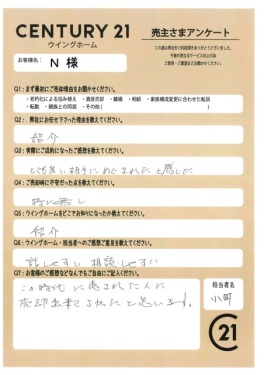 CENTURY 21
ウイングホーム
売主さまアンケート
この度は弊社をご利用頂きありがとうございました。
今後の更なるサービス向上の為
ご意見・ご要望などお聞かせください。
お客様名： N 様
Q1：まず最初にご売却理由をお聞かせください。
・老朽化による住み替え ・資産売却 ・離婚 ・相続 ・家族構成変更に合わせた転居
・転勤 ・親族との同居 ・その他（ ）
Q2：．弊社にお任せ下さった理由を教えてください。
紹介
Q3：実際にご成約になったご感想を教えてください。
とても良い相手にめぐまれたと感じた
Q4：ご売却時に不安だった点を教えてください。
特に無し
Q5：ウイングホームをどこでお知りになったか教えてください。
紹介
Q6：ウイングホーム・担当者へのご感想ご意見を教えてください。
話しやすい 相談しやすい
Q7：お客様のご感想などなんでもご自由にご記入ください。
この時代に恵まれた人に
売却出来てよかったと思います。
担当者名
小町
C21